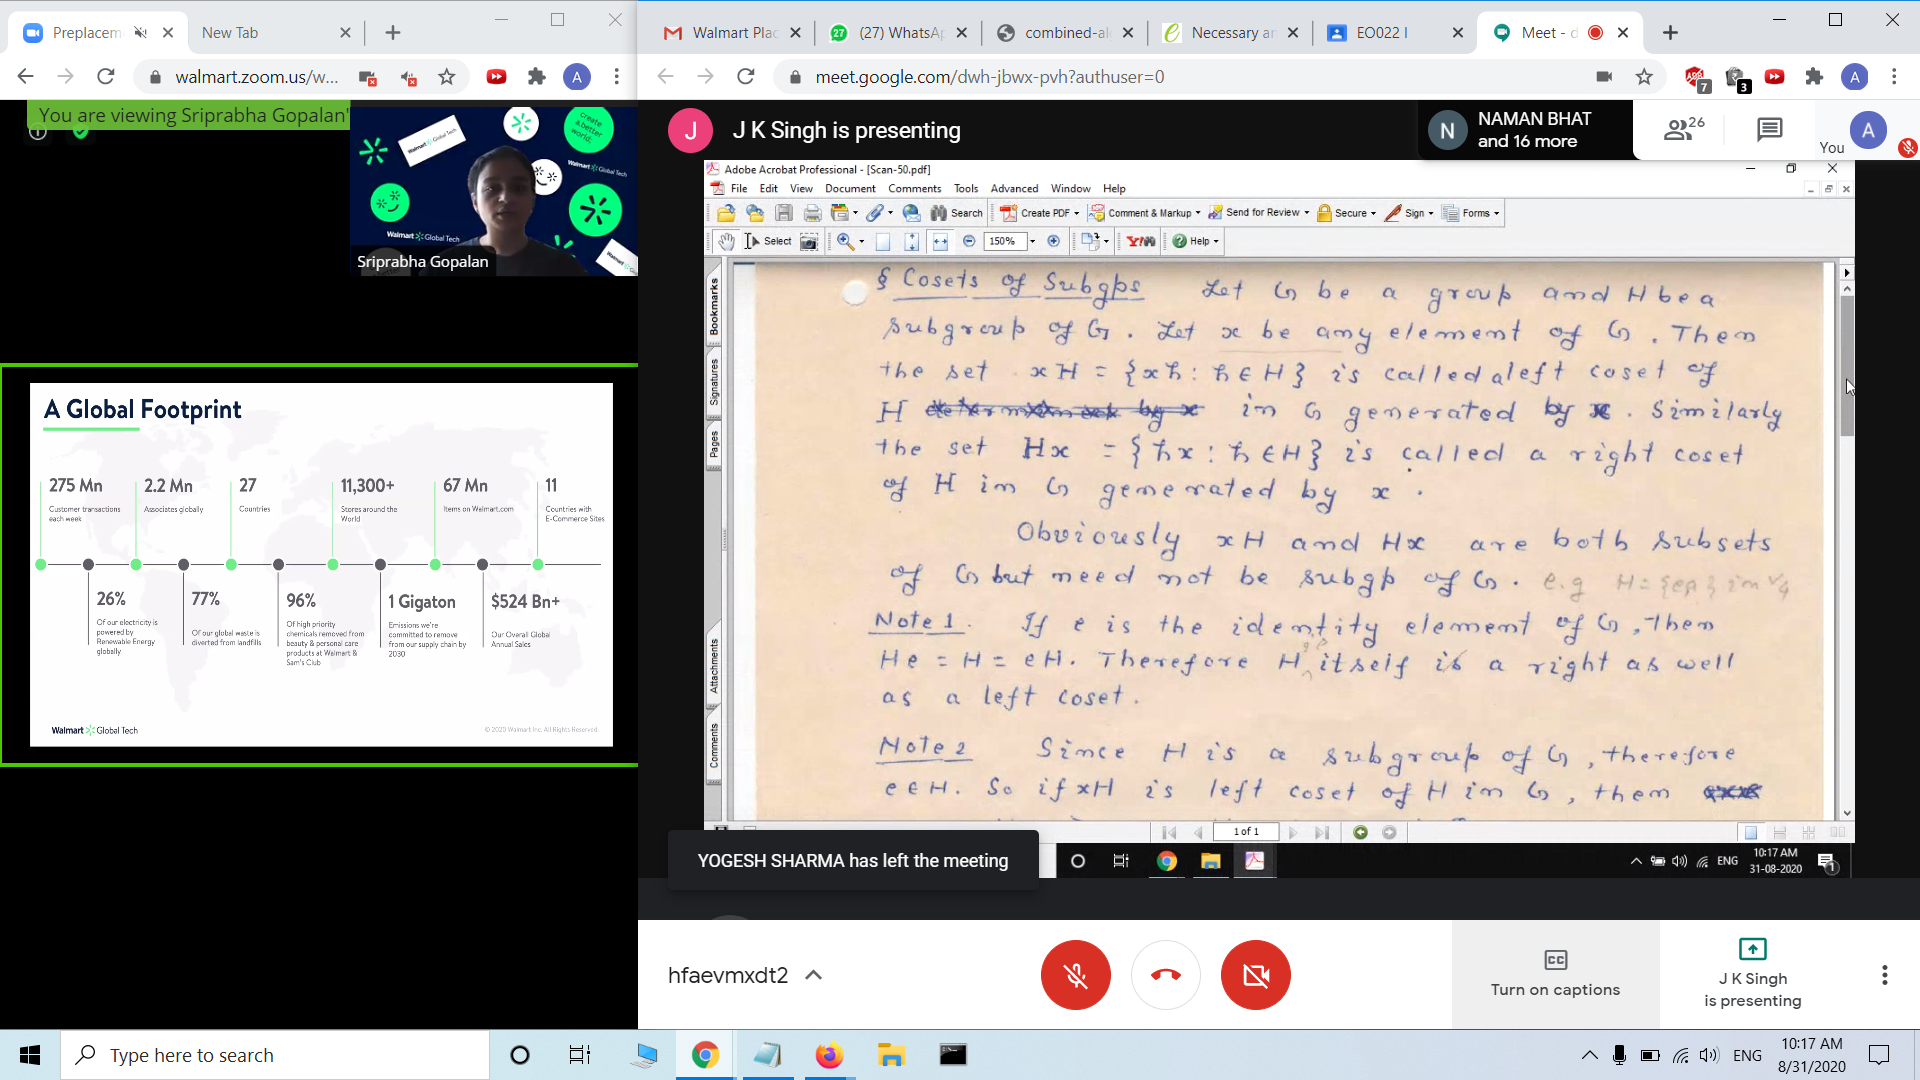 Preplacem
New Tab
walmart.zoom.us/w...
You are viewing Sriprabha Gopalan'
create a better world.
Walmart Global Tech
Walmart Global Tech
Sriprabha Gopalan
A Global Footprint
275 Mn
Customer transactions
each week
2.2 Mn
Associates globally
27
Countries
11,300+
Stores around the
World
67 Mn
Items on Walmart.com
11
Countries with
E-Commerce Sites
26%
Of our electricity is
powered by
Renewable Energy
globally
77%
Of our global waste is
diverted from landfills
96%
Of high priority
chemicals removed from
beauty & personal care
products at Walmart &
Sam's Club
1 Gigaton
Emissions we're
committed to remove
from our supply chain by
2030
$524 Bn+
Our Overall Global
Annual Sales
Walmart Global Tech
© 2020 Walmart Inc. All Rights Reserved.
Walmart Plac
(27) WhatsAp
combined-al
Necessary an
EO022 I
Meet - d
meet.google.com/dwh-jbwx-pvh?authuser=0
7
3
A
J
J K Singh is presenting
N
NAMAN BHAT
and 16 more
26
You
A
Adobe Acrobat Professional - [Scan-50.pdf]
File Edit View Document Comments Tools Advanced Window Help
Search Create PDF Comment & Markup Send for Review Secure Sign Forms
Select 150% Y! Help
Bookmarks
Signatures
Pages
Attachments
Comments
§ Cosets of Subgps Let G be a group and H be a
subgroup of G. Let x be any element of G. Then
the set xH = {xh : h ∈ H} is called a left coset of
H in G generated by x. Similarly
the set Hx = {hx : h ∈ H} is called a right coset
of H in G generated by x.
Obviously xH and Hx are both subsets
of G but need not be subgp of G. e.g H = {e,a} in V4
Note 1. If e is the identity element of G, then
He = H = eH. Therefore H itself is a right as well
as a left coset.
Note 2 Since H is a subgroup of G, therefore
e ∈ H. So if xH is left coset of H in G, then
1 of 1
YOGESH SHARMA has left the meeting
ENG
10:17 AM
31-08-2020
1
hfaevmxdt2
Turn on captions
J K Singh
is presenting
Type here to search
ENG
10:17 AM
8/31/2020